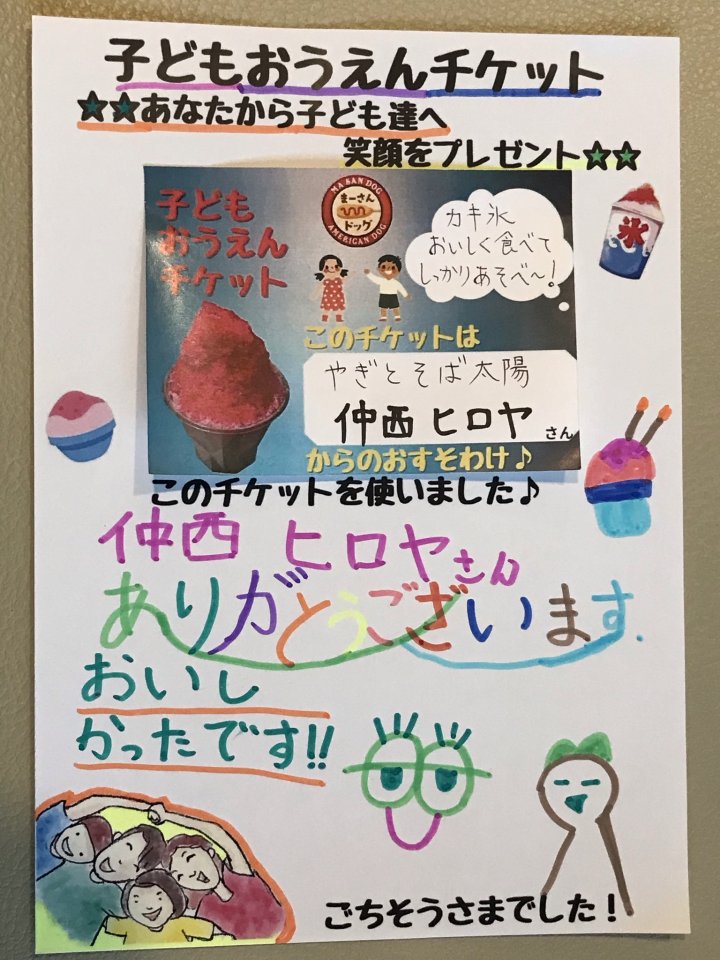 子どもおうえんチケット
★★あなたから子ども達へ
笑顔をプレゼント★★
子ども
おうえん
チケット
MA SAN DOG
まーさん
ドッグ
AMERICAN DOG
カキ氷
おいしく食べて
しっかりあそべ〜!
このチケットは
やぎとそば太陽
仲西 ヒロヤ さん
からのおすそわけ♪
氷
このチケットを使いました♪
仲西 ヒロヤさん
ありがとうございます.
おいし
かったです!!
ごちそうさまでした!